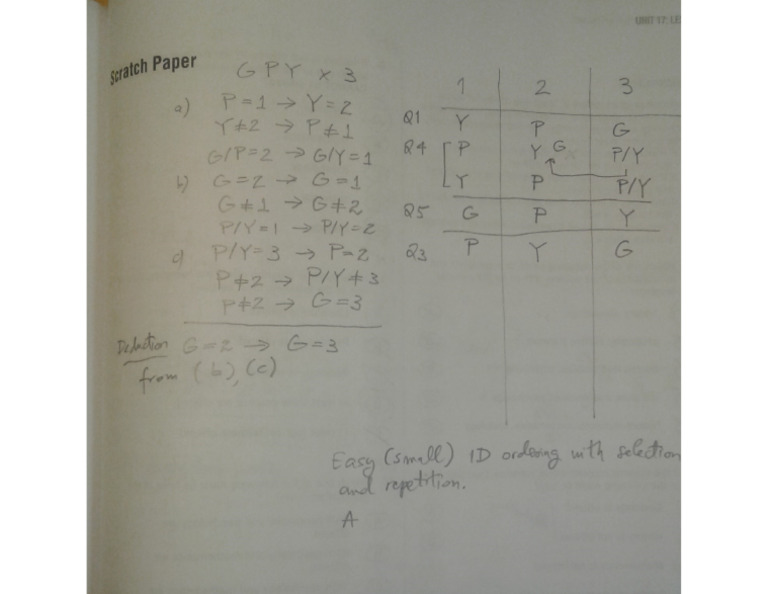 UNIT 17: LE
Scratch Paper
G P Y x 3
a) P=1 → Y=2
Y≠2 → P≠1
G/P=2 → G/Y=1
b) G=2 → G=1
G≠1 → G≠2
P/Y=1 → P/Y=2
c) P/Y=3 → P=2
P≠2 → P/Y≠3
P≠2 → G=3
Deduction G=2 → G=3
from (b), (c)
1 2 3
Q1 Y P G
Q4 P Y G P/Y
Y P P/Y
Q5 G P Y
Q3 P Y G
Easy (small) 1D ordering with selection
and repetition.
A